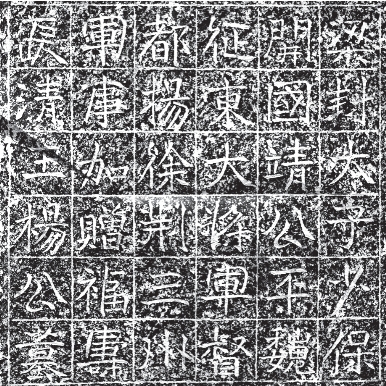 梁封太子少保
開國靖公平魏
征東大將軍督
都揚徐荆三州
軍事加贈福專
清王楊公墓